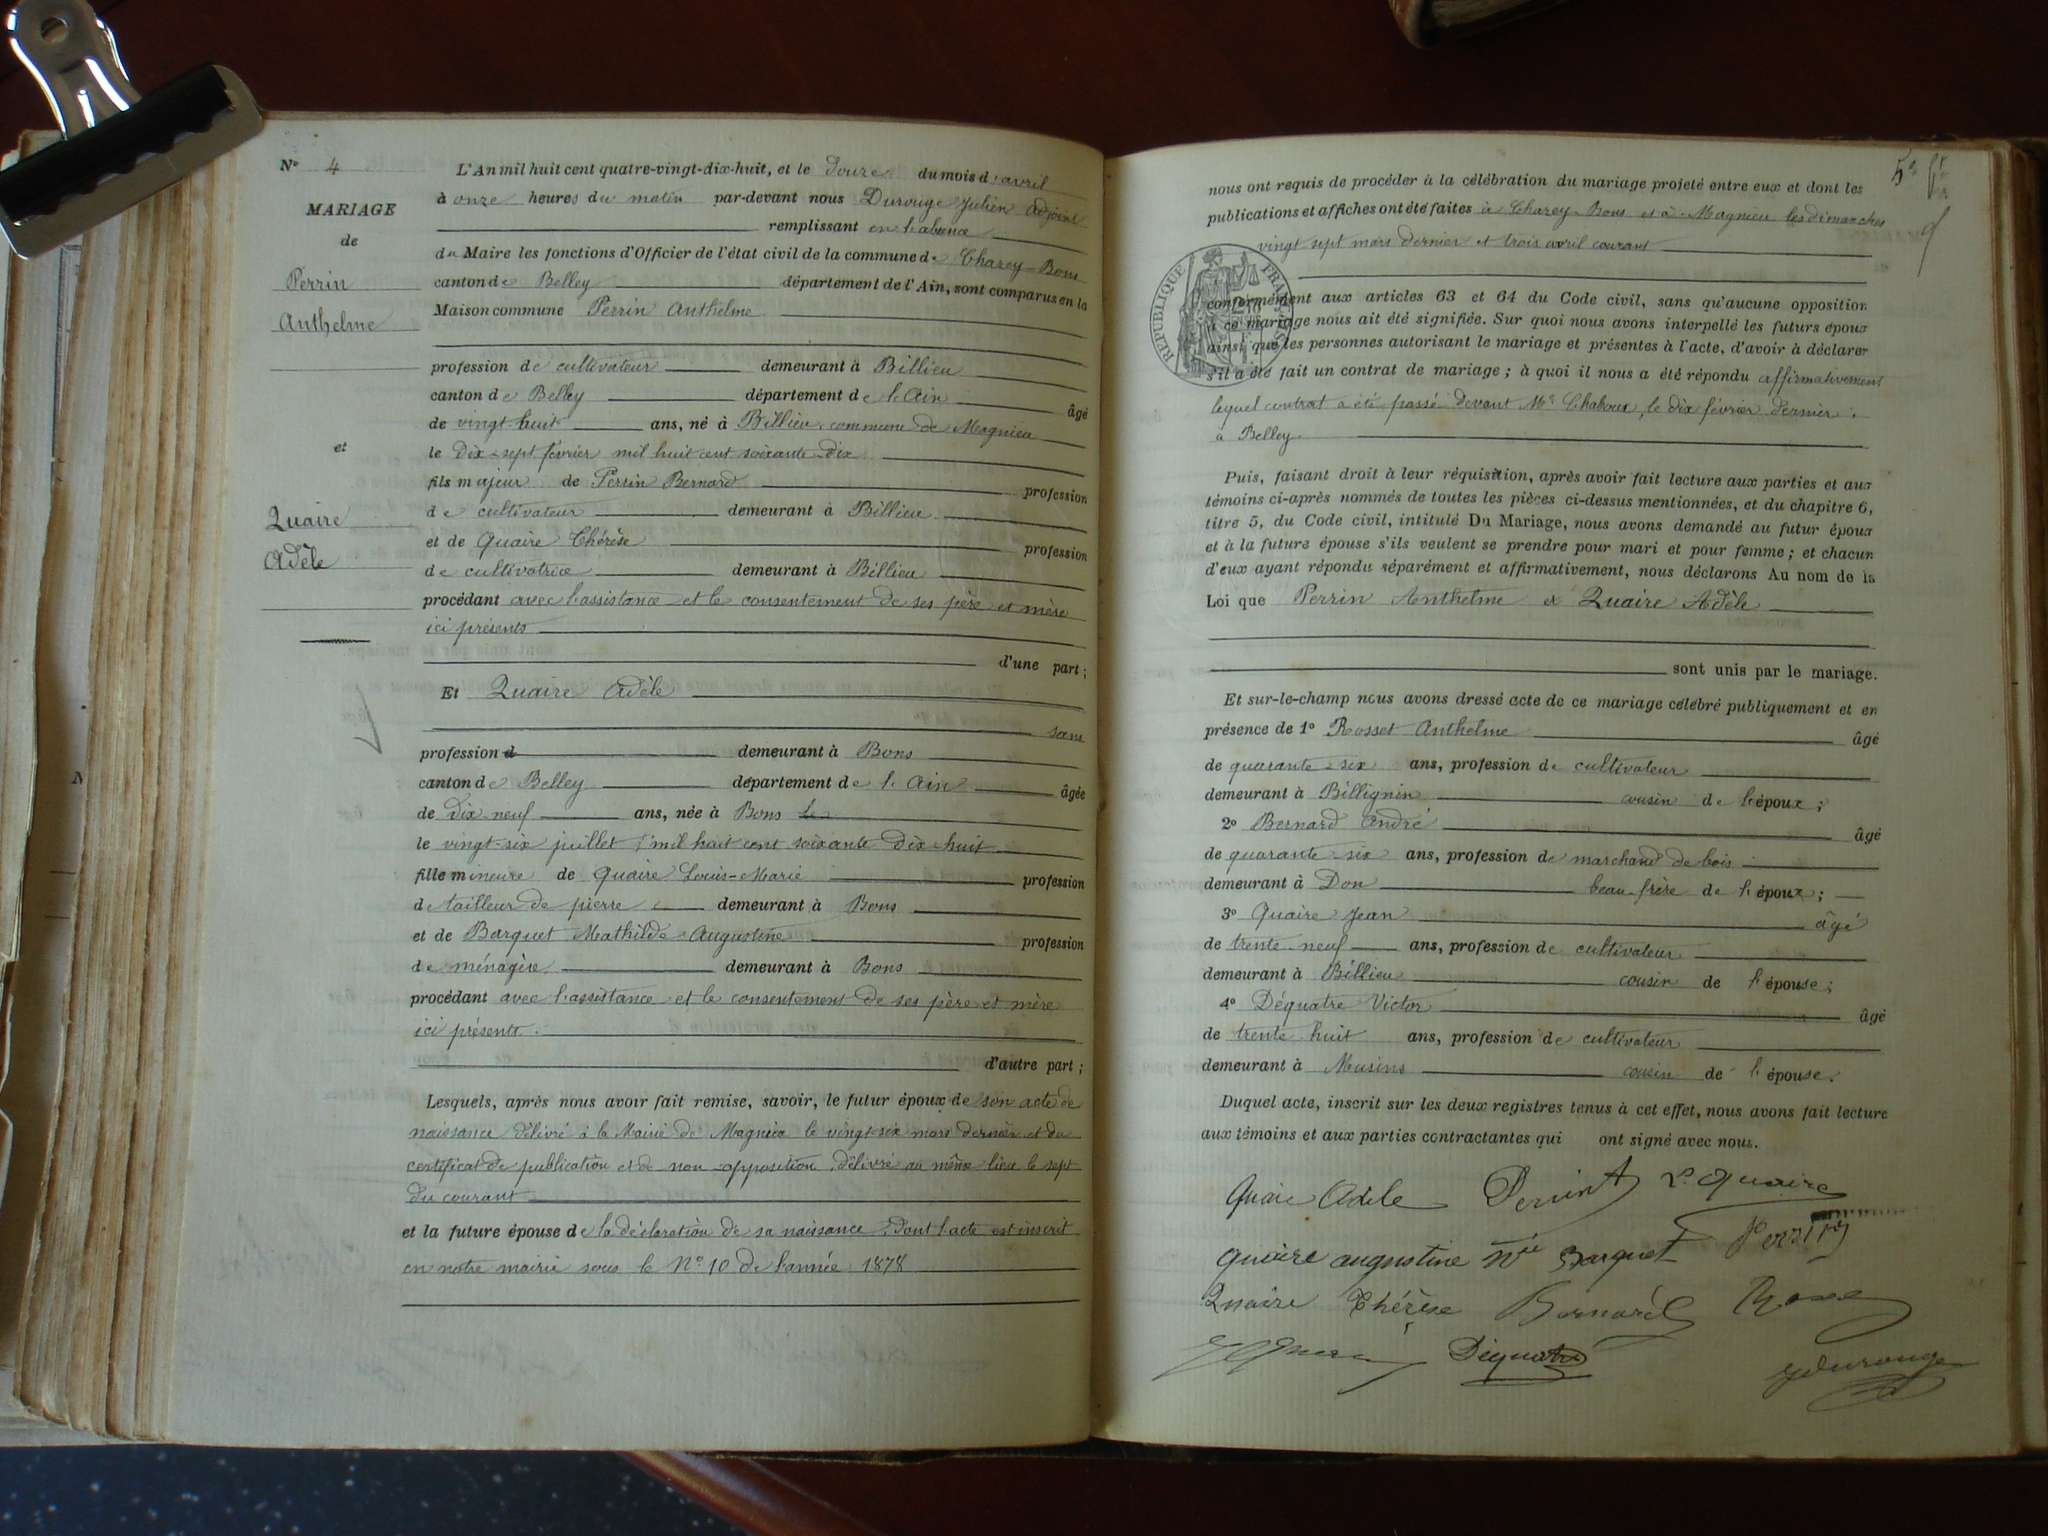 N° 4
MARIAGE
de
Perrin
Anthelme
et
Quaire
Adèle
L'An mil huit cent quatre-vingt-dix-huit, et le douze du mois d'avril
à onze heures du matin par-devant nous Durouge Julien adjoint
remplissant en l'absence
du Maire les fonctions d'Officier de l'état civil de la commune de Charey-Bons
canton de Belley département de l'Ain, sont comparus en la
Maison commune Perrin Anthelme
profession de cultivateur demeurant à Billieu
canton de Belley département de l'Ain âgé
de vingt-huit ans, né à Billieu, commune de Magnieu
le dix-sept février mil huit cent soixante-dix
fils majeur de Perrin Bernard profession
de cultivateur demeurant à Billieu
et de Quaire Thérèse profession
de cultivatrice demeurant à Billieu
procédant avec l'assistance et le consentement de ses père et mère
ici présents
d'une part ;
Et Quaire Adèle
sans
profession d demeurant à Bons
canton de Belley département de l'Ain âgée
de dix-neuf ans, née à Bons le
le vingt-six juillet mil huit cent soixante dix-huit
fille mineure de Quaire Louis-Marie profession
de tailleur de pierre demeurant à Bons
et de Barquet Mathilde Augustine profession
de ménagère demeurant à Bons
procédant avec l'assistance et le consentement de ses père et mère
ici présents.
d'autre part ;
Lesquels, après nous avoir fait remise, savoir, le futur époux de son acte de
naissance délivré à la Mairie de Magnieu le vingt-six mars dernier et du
certificat de publication et de non-opposition, délivré au même lieu le sept
du courant
et la future épouse de la déclaration de sa naissance, dont l'acte est inscrit
en notre mairie sous le N° 10 de l'année 1878
5
nous ont requis de procéder à la célébration du mariage projeté entre eux et dont les
publications et affiches ont été faites à Charey-Bons et à Magnieu les dimanches
vingt sept mars dernier et trois avril courant
RÉPUBLIQUE FRANÇAISE
conformément aux articles 63 et 64 du Code civil, sans qu'aucune opposition
à ce mariage nous ait été signifiée. Sur quoi nous avons interpellé les futurs époux
ainsi que les personnes autorisant le mariage et présentes à l'acte, d'avoir à déclarer
s'il a été fait un contrat de mariage ; à quoi il nous a été répondu affirmativement
lequel contrat a été passé devant Me Chaboux, le dix février dernier.
à Belley
Puis, faisant droit à leur réquisition, après avoir fait lecture aux parties et aux
témoins ci-après nommés de toutes les pièces ci-dessus mentionnées, et du chapitre 6,
titre 5, du Code civil, intitulé Du Mariage, nous avons demandé au futur époux
et à la future épouse s'ils veulent se prendre pour mari et pour femme ; et chacun
d'eux ayant répondu séparément et affirmativement, nous déclarons Au nom de la
Loi que Perrin Anthelme et Quaire Adèle
sont unis par le mariage.
Et sur-le-champ nous avons dressé acte de ce mariage célébré publiquement et en
présence de 1° Rosset Anthelme âgé
de quarante-six ans, profession de cultivateur
demeurant à Billignin cousin de l'époux ;
2° Bernard André âgé
de quarante-six ans, profession de marchand de bois
demeurant à Don beau-frère de l'époux ;
3° Quaire Jean âgé
de trente-neuf ans, profession de cultivateur
demeurant à Billieu cousin de l'épouse ;
4° Déquatre Victor âgé
de trente-huit ans, profession de cultivateur
demeurant à Musins cousin de l'épouse.
Duquel acte, inscrit sur les deux registres tenus à cet effet, nous avons fait lecture
aux témoins et aux parties contractantes qui ont signé avec nous.
Quaire Adèle Perrin A L. Quaire
quaire augustine née Barquet Perrin
Quaire Thérèse Bernard Rosset
Déquatre J Durouge